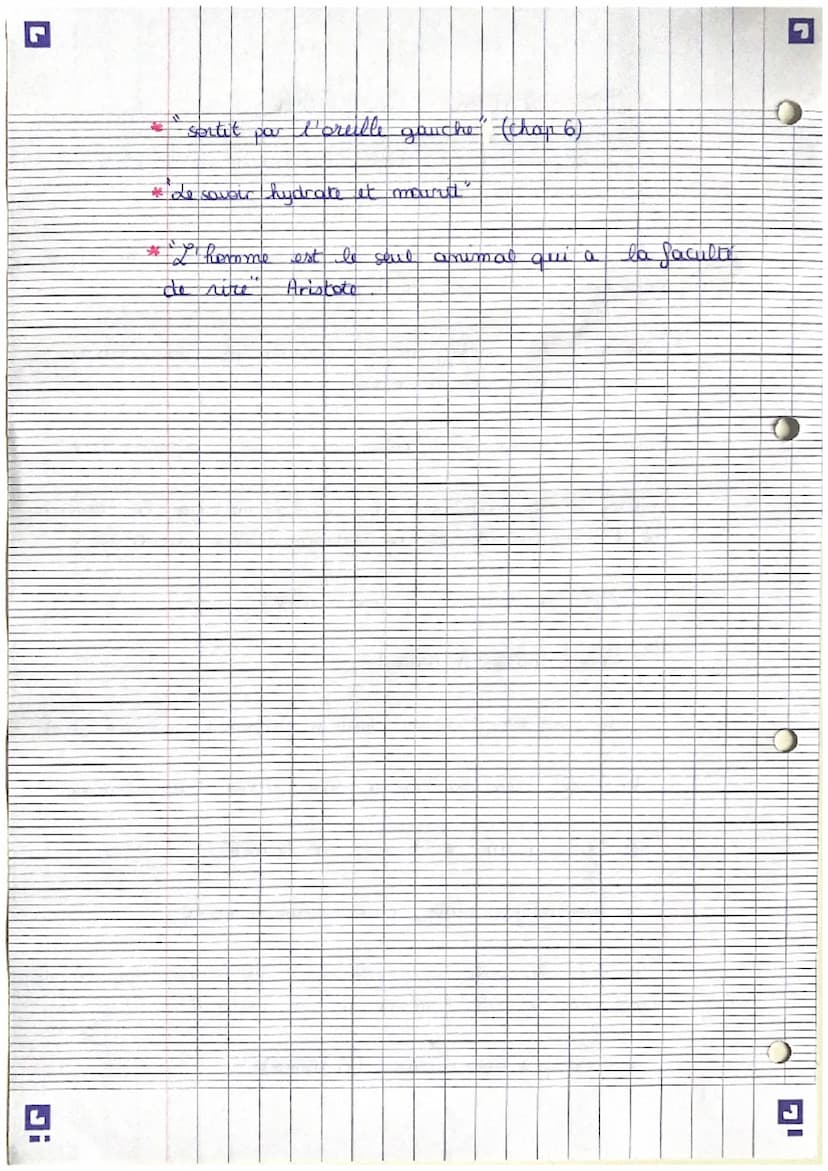 * "sortit par l'oreille gauche" (chap 6)
* "Le savoir hydrate et mourit"
* "L'homme est le seul animal qui a la faculté
de rire" Aristote.